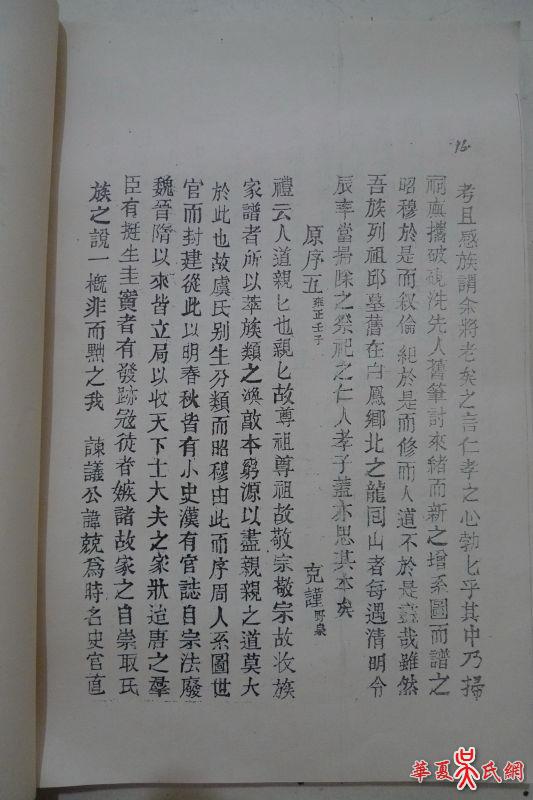 16.
考且感族謂余將老矣之言仁孝之心勃匕乎其中乃掃
祠廡攜破硯洗先人舊筆討來緒而新之增系圖而譜之
昭穆於是而叙倫紀於是而修而人道不於是盡哉雖然
吾族列祖邱墓舊在白鳳鄉北之龍囘山者每遇清明令
辰率當掃除之祭祀之仁人孝子蓋亦思其本矣
原序五 雍正壬子 克謹 野泉
禮云人道親匕也親匕故尊祖尊祖故敬宗敬宗故收族
家譜者所以萃族類之渙敵本窮源以盡親親之道莫大
於此也故虞氏別生分類而昭穆由此而序周人系圖世
官而封建從此以明春秋皆有小史漢有官誌自宗法廢
魏晉隋以來皆立局以收天下士大夫之家狀迨唐之羣
臣有挺生圭竇者有發跡冦徒者嫉諸故家之自崇取氏
族之說一概非而黜之我 諫議公諱兢爲時名史官直
華夏吳氏網